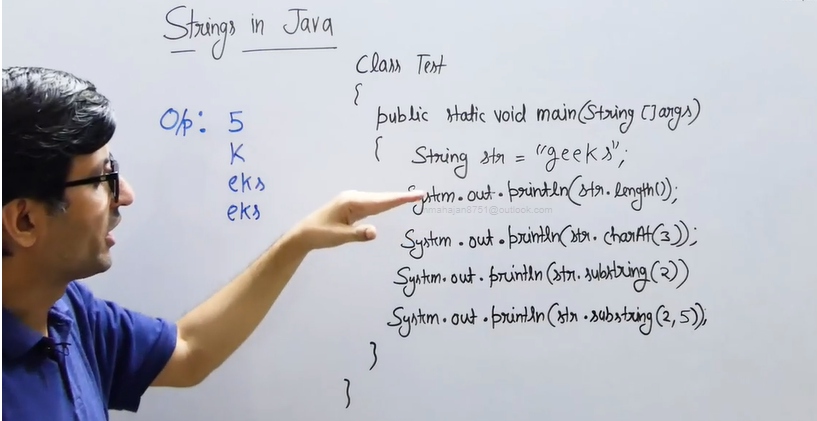 Strings in Java
Class Test
{
public static void main(String []args)
{ String str = "geeks";
O/p: 5
K
eks
eks
System.out.println(str.length();
mahajan8751@outlook.com
System.out.println(str.charAt(3));
System.out.println(str.substring(2))
System.out.println(str.substring(2,5));
}
}